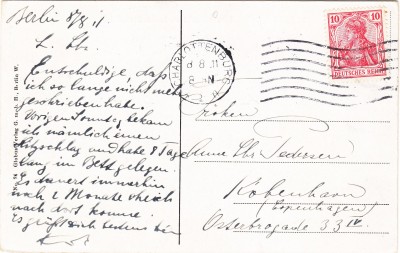 Berlin 8/8 11
L. Ebr.
Entschuldige, daß
ich so lange nicht mehr
geschrieben habe.
Vorigen Sonntag bekam
ich nämlich einen
und habe 8 Tage
lang im Bett gelegen.
Es dauert immerhin
noch 2 Monate ehe ich
nach dort komme.
Es grüßt dich bestens dein
CHARLOTTENBURG
8 11
8-9N
10 10
DEUTSCHES REICH
Frøken
Anna Pedersen
København
(Kopenhagen)
Østerbrogade 33 IV